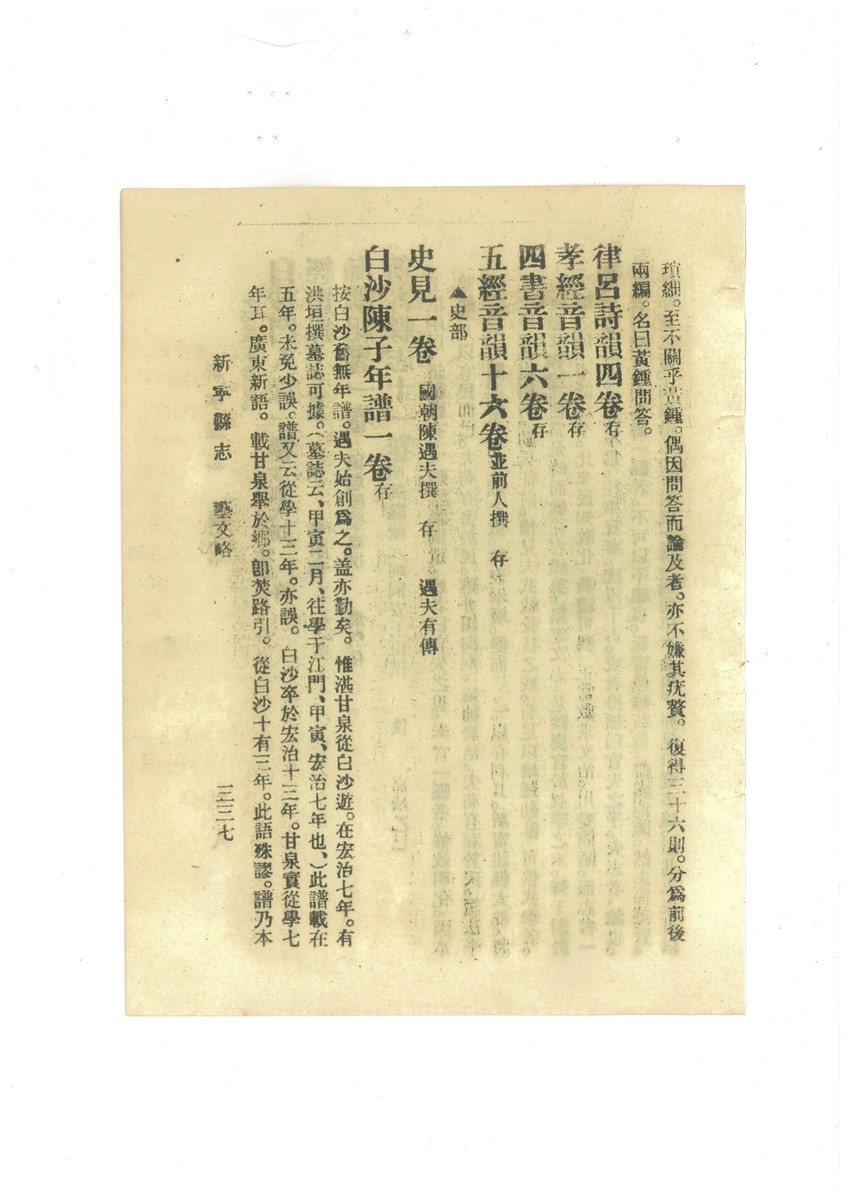 瑣細。至不關乎黃鍾。偶因問答而論及者。亦不嫌其疣贅。復得三十六則。分爲前後
兩編。名曰黃鍾問答。
律呂詩韻四卷存
孝經音韻一卷存
四書音韻六卷存
五經音韻十六卷並前人撰 存
▲史部
史見一卷 國朝陳遇夫撰 存 遇夫有傳
白沙陳子年譜一卷存
按白沙舊無年譜。遇夫始創爲之。盖亦勤矣。惟湛甘泉從白沙遊。在宏治七年。有
洪垣撰墓誌可據。(墓誌云、甲寅二月、往學于江門、甲寅、宏治七年也、)此譜載在
五年。未免少誤。譜又云從學十三年。亦誤。白沙卒於宏治十三年。甘泉實從學七
年耳。廣東新語。載甘泉舉於鄉。卽焚路引。從白沙十有三年。此語殊謬。譜乃本
新寧縣志 藝文略
三三七